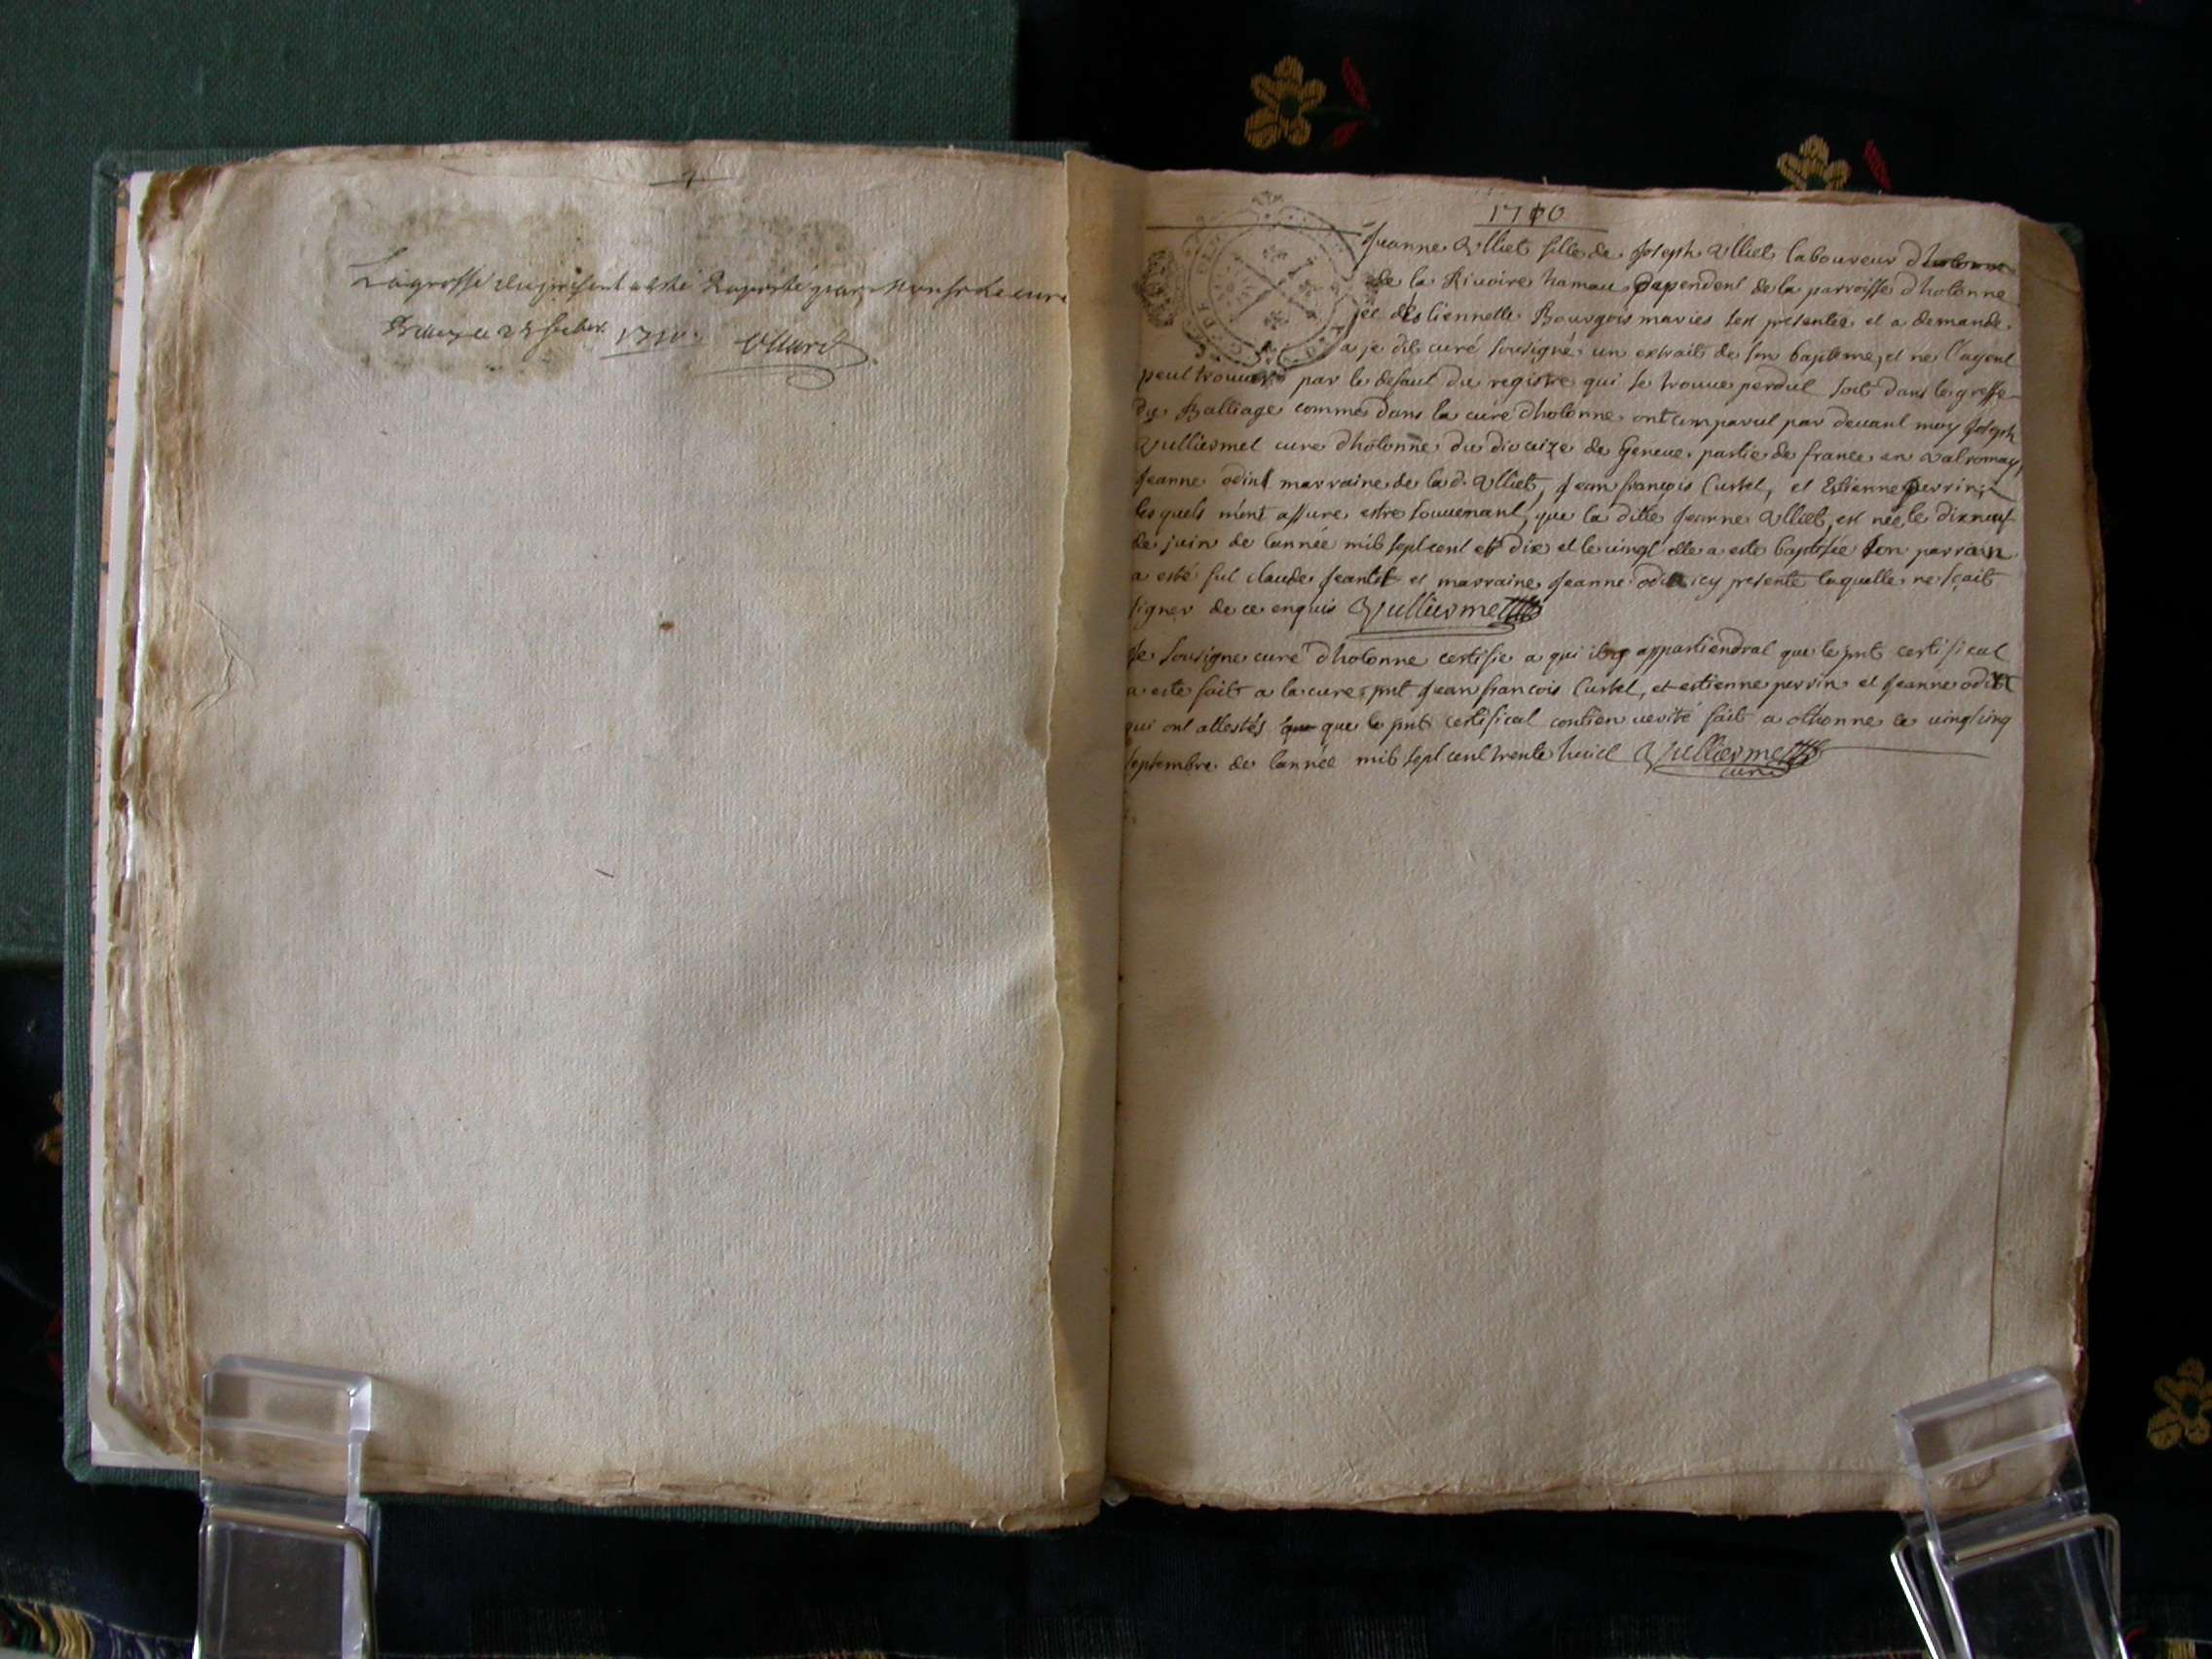 La grosse du present a esté Raportée par Monsr le curé
le 25 1710. Ollard
1710
Jeanne Vlliet fille de Joseph Vlliet laboureur dholonne
de la Riuoire hamau Dependent de la parroisse dholonne
et destiennette Bourgois maries sest presentée et a demande
a je dit curé sousigné un extrait de son bapteme, et ne l'ayent
peut trouver par le defaut du registre qui se trouue perdut soit dans le greffe
du Balliage comme dans la cure dholonne ont comparut par deuant moy Joseph
Vulliermet cure dholonne du diocaize de Geneue partie de france en valromay,
Jeanne odint marraine de lad. Vlliet, Jean françois Curtet, et Estienne perrin
les quels m'ont assure estre souuenant, que la ditte Jeanne Vlliet, est née le dixneuf
de juin de lannée mil sept cent et dix et le vingt elle a este baptisée son parrain
a esté fut claude Jeantet et marraine Jeanne odin icy presente laquelle ne sçait
signer de ce enquis Vulliermet
Je sousigne cure dholonne certifie a qui il appartiendrat que le pnt certificat
a este fait a la cure pnt Jean francois Curtet, et estienne perrin et Jeanne odint
qui ont attestés que que le pnt certificat contien verité fait a othonne le vingt cinq
septembre de lannée mil sept cent trente huict Vulliermet
curé